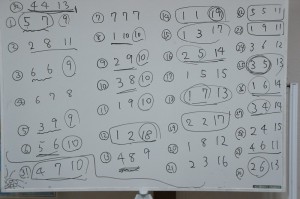 4 4 13
① 5 7 9
② 2 8 11
③ 6 6 9
④ 6 7 8
⑤ 3 9 9
⑥ 5 6 10
4 7 10
⑦ 7 7 7
⑧ 1 10 10
⑨ 2 9 10
⑩ 3 8 10
⑪ 1 9 10
⑫ 1 2 18
⑬ 4 8 9
1 1 19
⑮ 1 3 17
⑯ 2 5 14
⑰ 1 5 15
⑱ 1 7 13
⑲ 2 2 17
⑳ 1 8 12
㉑ 2 3 16
5 5 11
1 9 11
3 6 12
3 5 13
1 6 14
3 4 14
2 4 15
4 6 11
2 6 13